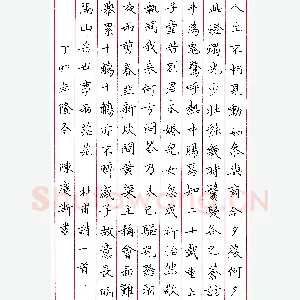 人生不相見動如參與商今夕復何夕
共此燈燭光少壯能幾時鬢髮各已蒼訪
舊半為鬼驚呼熱中腸焉知二十載重上
君子堂昔別君未婚兒女忽成行怡然敬父
執問我來何方問答乃未已驅兒羅酒漿
夜雨翦春韭新炊間黃粱主稱會面難一
舉累十觴十觴亦不醉感子故意長明日
隔山岳世事兩茫茫 杜甫詩一首
丁卯 隆冬 陳 書